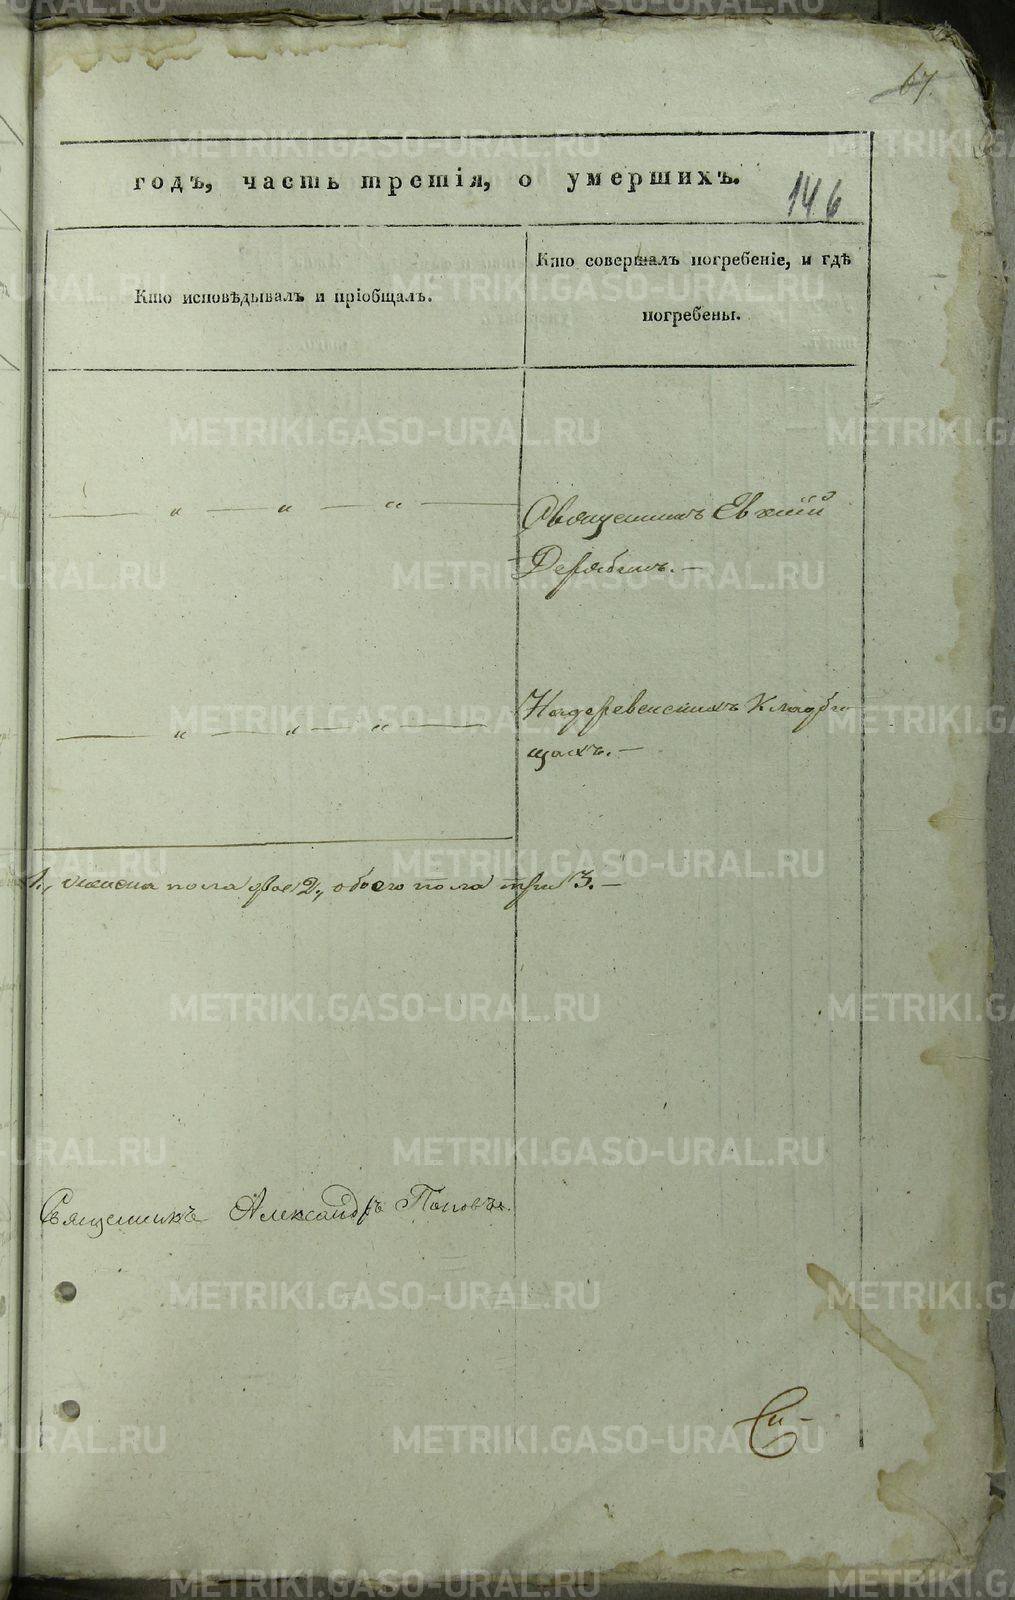 67.
годъ, часть третія, о умершихъ.
146
Кто исповѣдывалъ и пріобщалъ.
Кто совершалъ погребеніе, и гдѣ
погребены.
— „ — „ — „ —
Священникъ
Дерябинъ. —
— „ — „ — „ —
На деревенскихъ кладби
щахъ. —
1., женска пола двѣ 2., обоего пола три 3. —
Священникъ Александръ Поповъ.
METRIKI.GASO-URAL.RU